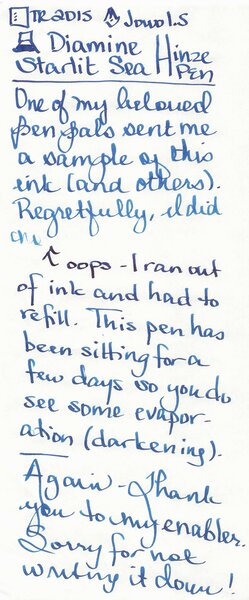 TR2015 Jowo 1.5
Diamine Hinze
Starlit Sea Pen
One of my beloved
pen pals sent me
a sample of this
ink (and others).
Regretfully, I did
↑ oops - I ran out
of ink and had to
refill. This pen has
been sitting for a
few days so you do
see some evapor-
ation (darkening).
Again - Thank
you to my enabler.
Sorry for not
writing it down!